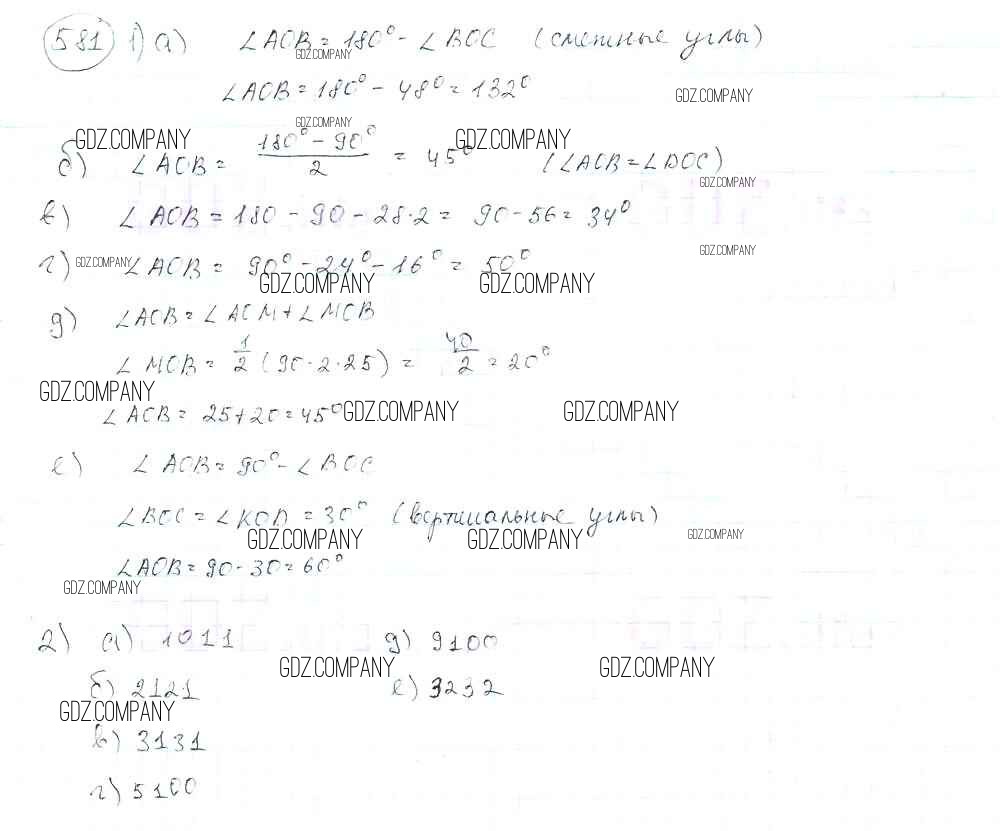 581 1) а) ∠AOB = 180° - ∠BOC (смежные углы)
GDZ.COMPANY
∠AOB = 180° - 48° = 132°
GDZ.COMPANY
GDZ.COMPANY
GDZ.COMPANY GDZ.COMPANY
б) ∠AOB = (180° - 90°)/2 = 45° (∠AOB = ∠DOC)
GDZ.COMPANY
в) ∠AOB = 180 - 90 - 28·2 = 90 - 56 = 34°
GDZ.COMPANY
г) GDZ.COMPANY ∠AOB = 90° - 24° - 16° = 50°
GDZ.COMPANY GDZ.COMPANY
д) ∠AOB = ∠AOM + ∠MOB
∠MOB = 1/2 (90 - 2·25) = 40/2 = 20°
GDZ.COMPANY
∠AOB = 25 + 20 = 45° GDZ.COMPANY GDZ.COMPANY
е) ∠AOB = 90° - ∠BOC
∠BOC = ∠KOD = 30° (вертикальные углы)
GDZ.COMPANY GDZ.COMPANY GDZ.COMPANY
∠AOB = 90 - 30 = 60°
GDZ.COMPANY
2) а) 1011 д) 9100
GDZ.COMPANY GDZ.COMPANY
б) 2121 е) 3232
GDZ.COMPANY
в) 3131
г) 5100